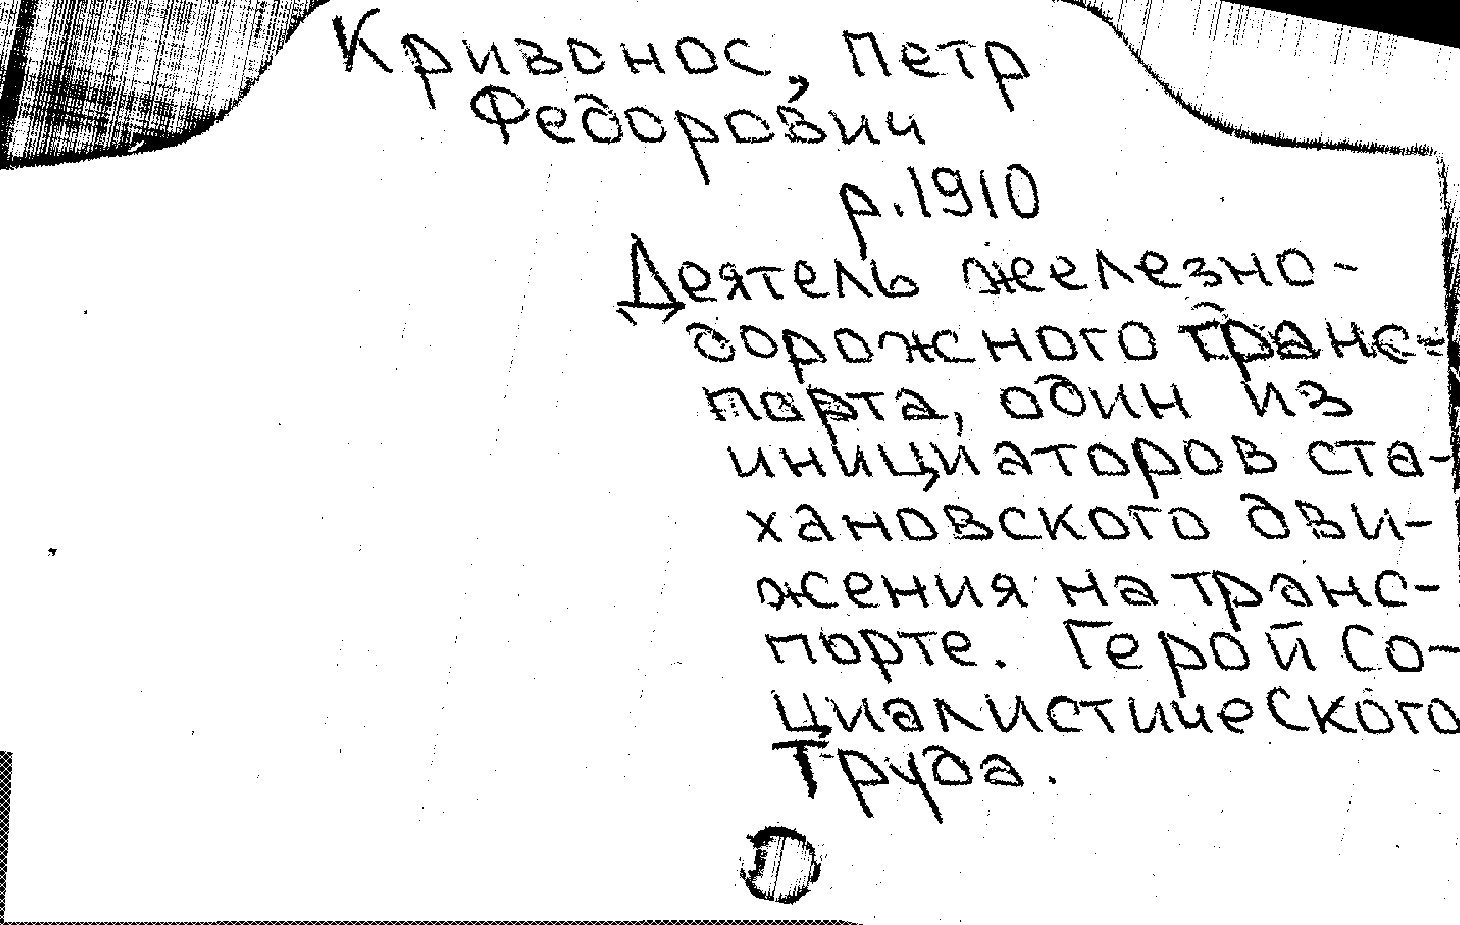 Кривонос, Петр
Федорович
р. 1910
Деятель железно-
дорожного транс-
порта, один из
инициаторов ста-
хановского дви-
жения на транс-
порте. Герой Со-
циалистического
Труда.